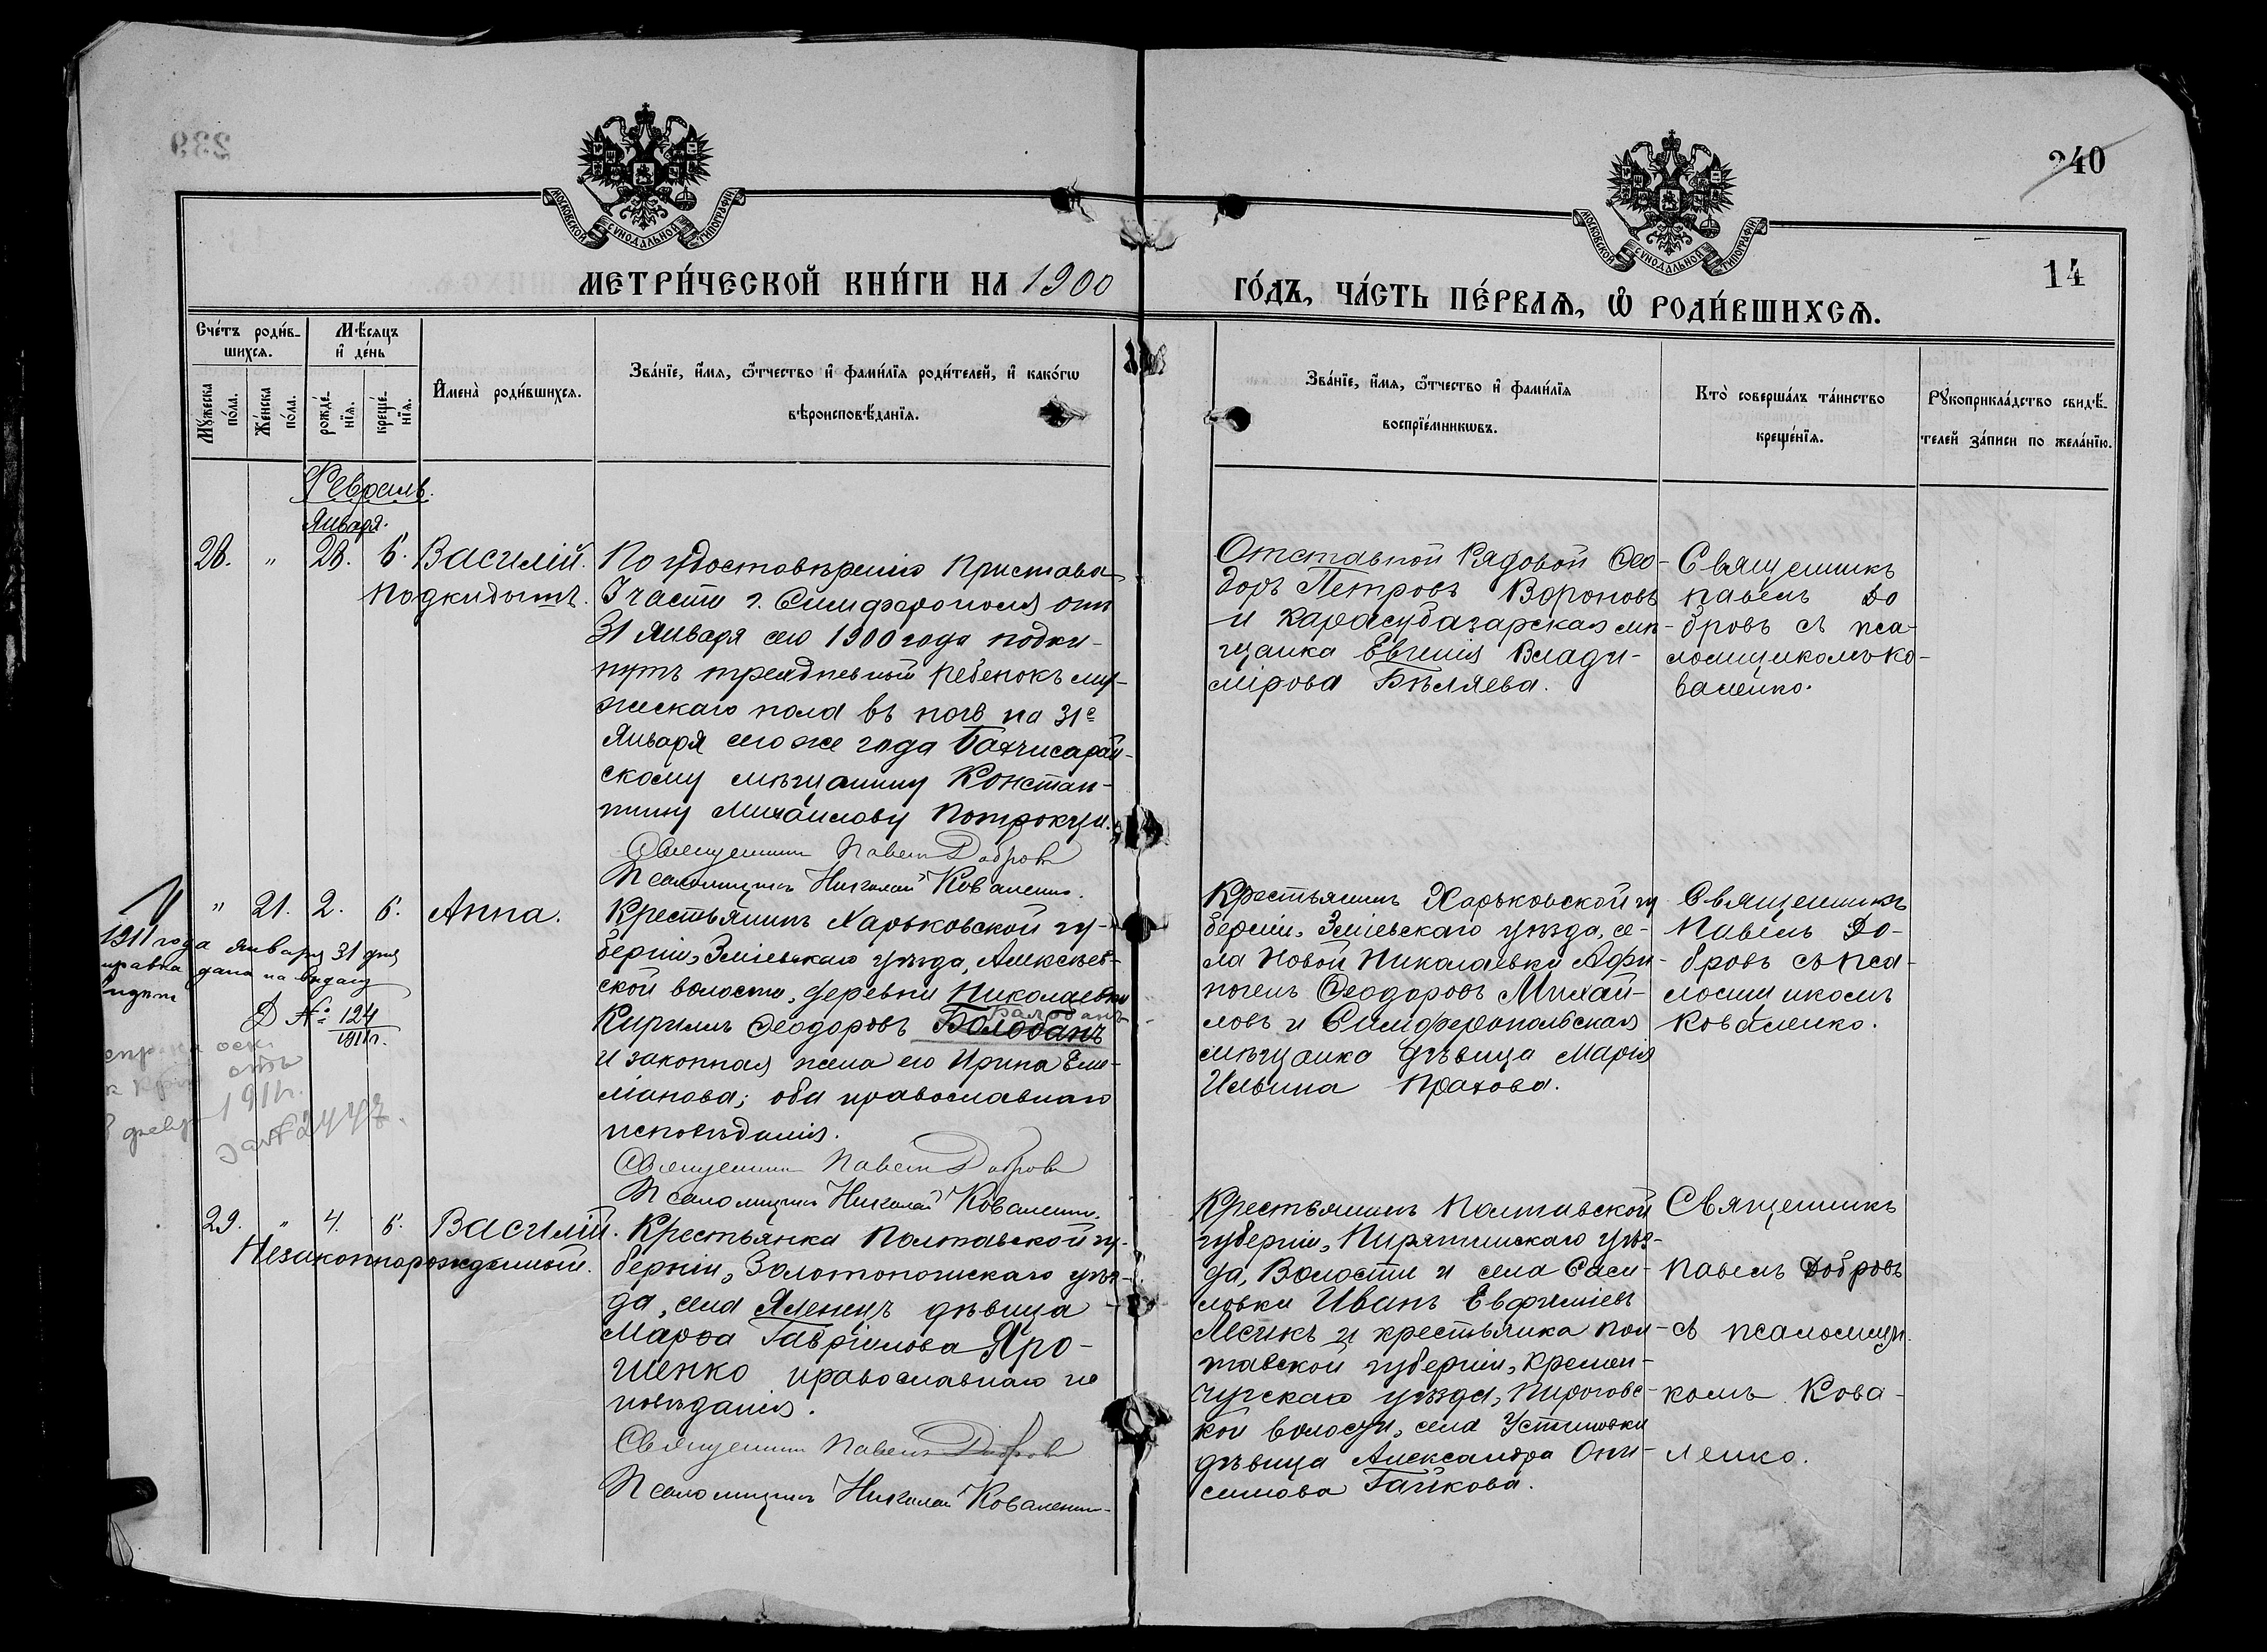 239
240
14
МОСКОВСКОЙ СУНОДАЛЬНОЙ ТИПОГРАФІИ
МОСКОВСКОЙ СУНОДАЛЬНОЙ ТИПОГРАФІИ
МЕТРИ́ЧЕСКОЙ КНИ́ГИ НА 1900
ГО́ДЪ, ЧА́СТЬ ПЕ́РВАѦ, Ѡ҆ РОДИ́ВШИХСѦ.
Сче́тъ роди́в-
шихсѧ.
Мѣ́сѧцъ
и҆ де́нь
Мꙋ́жеска
по́ла.
Же́нска
по́ла.
рожде́-
нїѧ.
креще́-
нїѧ.
И҆мена̀ роди́вшихсѧ.
Зва́нїе, и҆́мѧ, ѻ҆́тчество и҆ фами́лїѧ роди́телей, и҆ како́гѡ
вѣроисповѣ́данїѧ.
Зва́нїе, и҆́мѧ, ѻ҆́тчество и҆ фами́лїѧ
воспрїе́мникѡвъ.
Кто̀ соверша́лъ та́инство
креще́нїѧ.
Рꙋкоприкла́дство свидѣ́-
телей за́писи по жела́нїю.
Февраль.
Января.
28. " 28. 6. Василій.
Подкидышъ.
По удостовѣренію Пристава
3 части г. Симферополя отъ
31 Января сего 1900 года подки-
нутъ трехдневный ребенокъ му-
жескаго пола въ ночь на 31е
Января сего же года Бахчисарай-
скому мѣщанину Констан-
тину Михайлову Потрокуи.
Священникъ Павелъ Добровъ
Псаломщикъ Николай Коваленко.
Отставной Рядовой Ѳео-
доръ Петровъ Вороновъ
и Карасубазарская мѣ-
щанка Евгенія Влади-
мірова Бѣляева.
Священникъ
Павелъ До
бровъ съ пса-
ломщикомъ Ко-
валенко.
" 21. 2. 6. Анна.
1911 года января 31 дня
справка дана на выдачу
№ 124
1911 г.
отъ
1911г.
Крестьянинъ Харьковской гу-
берніи, Зміевскаго уѣзда, Алексѣев-
ской волости, деревни Николаевки
Балобанъ
Кириллъ Ѳеодоровъ Болобанъ
и законная жена его Ирина Еме-
ліанова; оба православнаго
исповѣданія.
Священникъ Павелъ Добровъ
Псаломщикъ Николай Коваленко.
Крестьянинъ Харьковской гу
берніи, Зміевскаго уѣзда, се-
ла Новой Николаевки Афи-
ногенъ Ѳеодоровъ Михай-
ловъ и Симферопольская
мѣщанка дѣвица Марія
Ильина Прахова.
Священникъ
Павелъ До-
бровъ съ пса-
ломщикомъ
Коваленко.
29. " 4. 6. Василій.
Незаконнорожденный.
Крестьянка Полтавской гу-
берніи, Золотоношскаго уѣз-
да, села Яменецъ дѣвица
Марѳа Гавріилова Яро-
шенко православнаго ис
повѣданія.
Священникъ Павелъ Добровъ
Псаломщикъ Николай Коваленко
Крестьянинъ Полтавской
губерніи, Пирятинскаго уѣз-
да, Волости и села Саси-
новки Иванъ Евфиміевъ
Лесикъ и крестьянка Пол-
тавской губерніи, Кремен-
чугскаго уѣзда, Пироговс-
кой волости, села Устимовки
дѣвица Александра Они-
симова Гайкова.
Священникъ
Павелъ Добровъ
съ псаломщи
комъ Кова-
ленко.